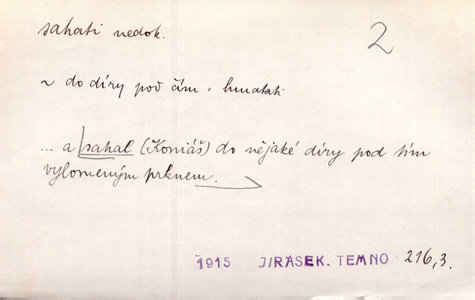 sahati nedok.
2
~ do díry pod čím = hmatati
... a sahal (Koniáš) do nějaké díry pod tím
vylomeným prknem.
1915 JIRASEK. TEMNO 216,3.